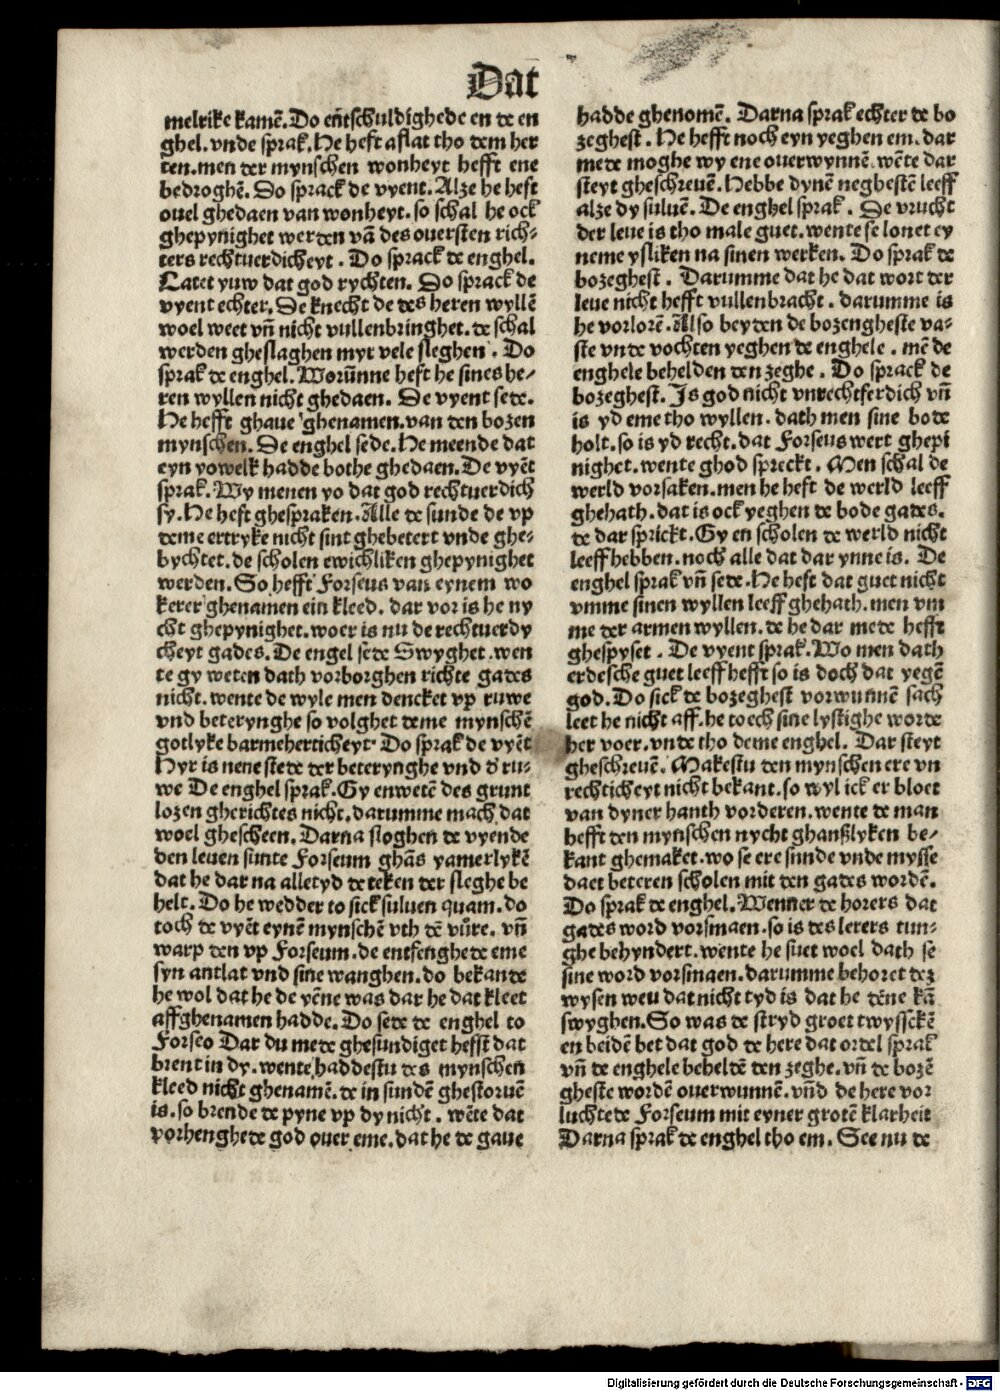 Dat
melrike kamē. Do eñtschuldighede en de en
ghel. vnde sprak. He heft aflat tho dem her
ten. men der mynschen wonheyt hefft ene
bedroghē. Do sprack de vyent. Alze he heft
ouel ghedaen van wonheyt. so schal he ock
ghepynighet werden vā des ouersten rich⸗
ters rechtuerdicheyt. Do sprack de enghel.
Latet yuw dat god rychten. Do sprack de
vyent echter. De knecht de des heren wyllē
woel weet vñ nicht vullenbringhet. de schal
werden gheslaghen myt vele sleghen. Do
sprak de enghel. Worūnne heft he sines he⸗
ren wyllen nicht ghedaen. De vyent sede.
He hefft ghaue ghenamen. van den bozen
mynschen. De enghel sede. He meende dat
eyn yowelk hadde bothe ghedaen. De vyēt
sprak. Wy menen yo dat god rechtuerdich
sy. He heft ghespraken. Alle de sunde de vp
deme ertryke nicht sint ghebetert vnde ghe⸗
bychtet. de scholen ewichliken ghepynighet
werden. So hefft Forseus van eynem wo
kerer ghenamen ein kleed. dar vor is he ny
cht ghepynighet. woer is nu de rechtuerdy
cheyt gades. De engel sede Swyghet. wen
te gy weten dath vorborghen richte gades
nicht. wente de wyle men dencket vp ruwe
vnd beterynghe so volghet deme mynschē
gotlyke barmeherticheyt. Do sprak de vyēt
Hyr is nene stede der beterynghe vnd d' ru⸗
we De enghel sprak. Gy enwetē des grunt
lozen gherichtes nicht. darumme mach dat
woel ghescheen. Darna sloghen de vyende
den leuen sunte Forseum ghās yamerlykē
dat he dar na alletyd de teken der sleghe be
helt. Do he wedder to sick suluen quam. do
toch de vyēt eynē mynschē vth dē vůre. vñ
warp den vp Forseum. de entfenghede eme
syn antlat vnd sine wanghen. do bekande
he wol dat he de yēne was dar he dat kleet
affghenamen hadde. Do sede de enghel to
Forseo Dar du mede ghesundiget heffst dat
brent in dy. wente haddestu des mynschen
kleed nicht ghenamē. de in sundē ghestoruē
is. so brende de pyne vp dy nicht. wēte dat
vorhenghede god ouer eme. dat he de gaue
hadde ghenomē. Darna sprak echter de bo
zeghest. He hefft noch eyn yeghen em. dar
mede moghe wy ene ouerwynnē. wēte dar
steyt gheschreuē. Hebbe dynē neghestē leeff
alze dy suluē. De enghel sprak. De vrucht
der leue is tho male guet. wente se lonet ey
neme ysliken na sinen werken. Do sprak de
bozeghest. Darumme dat he dat wort der
leue nicht hefft vullenbracht. darumme is
he vorlorē. Also beyden de bozengheste va⸗
ste vnde vochten yeghen de enghele. mē de
enghele behelden den zeghe. Do sprack de
bozeghest. Is god nicht vnrechtferdich vñ
is yd eme tho wyllen. dath men sine bode
holt. so is yd recht. dat Forseus wert ghepi
nighet. wente ghod spreckt. Men schal de
werld vorsaken. men he heft de werld leeff
ghehath. dat is ock yeghen de bode gades.
de dar sprickt. Gy en scholen de werld nicht
leeff hebben. noch alle dat dar ynne is. De
enghel sprak vñ sede. He heft dat guet nicht
vmme sinen wyllen leeff ghehath. men vm
me der armen wyllen. de he dar mede hefft
ghespyset. De vyent sprak. Wo men dath
erdesche guet leeff hefft so is doch dat yegē
god. Do sick de bozeghest vorwunnē sach
leet he nicht aff. he toech sine lystighe worde
her voer. vnde tho deme enghel. Dar steyt
gheschreuē. Makestu den mynschen ere vn
rechticheyt nicht bekant. so wyl ick er bloet
van dyner hanth vorderen. wente de man
hefft den mynschen nycht ghanßlyken be⸗
kant ghemaket. wo se ere sunde vnde mysse
daet beteren scholen mit den gades wordē.
Do sprak de enghel. Wenner de horers dat
gades word vorsmaen. so is des lerers tun⸗
ghe behyndert. wente he suet woel dath se
sine word vorsmaen. darumme behoret dez
wysen weu dat nicht tyd is dat he dēne kā
swyghen. So was de stryd groet twysschē
en beidē bet dat god de here dat ordel sprak
vñ de enghele beheldē den zeghe. vñ de bozē
gheste wordē ouerwunnē. vñd de here vor
luchtede Forseum mit eyner grotē klarheit
Darna sprak de enghel tho em. See nu de
Digitalisierung gefördert durch die Deutsche Forschungsgemeinschaft - DFG